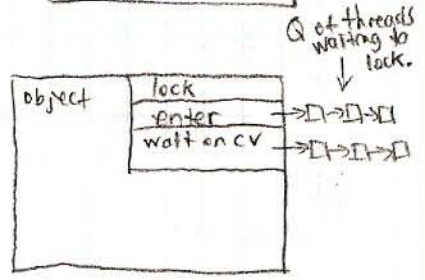 Q of threads
waiting to
lock.
object
lock
enter
wait on CV